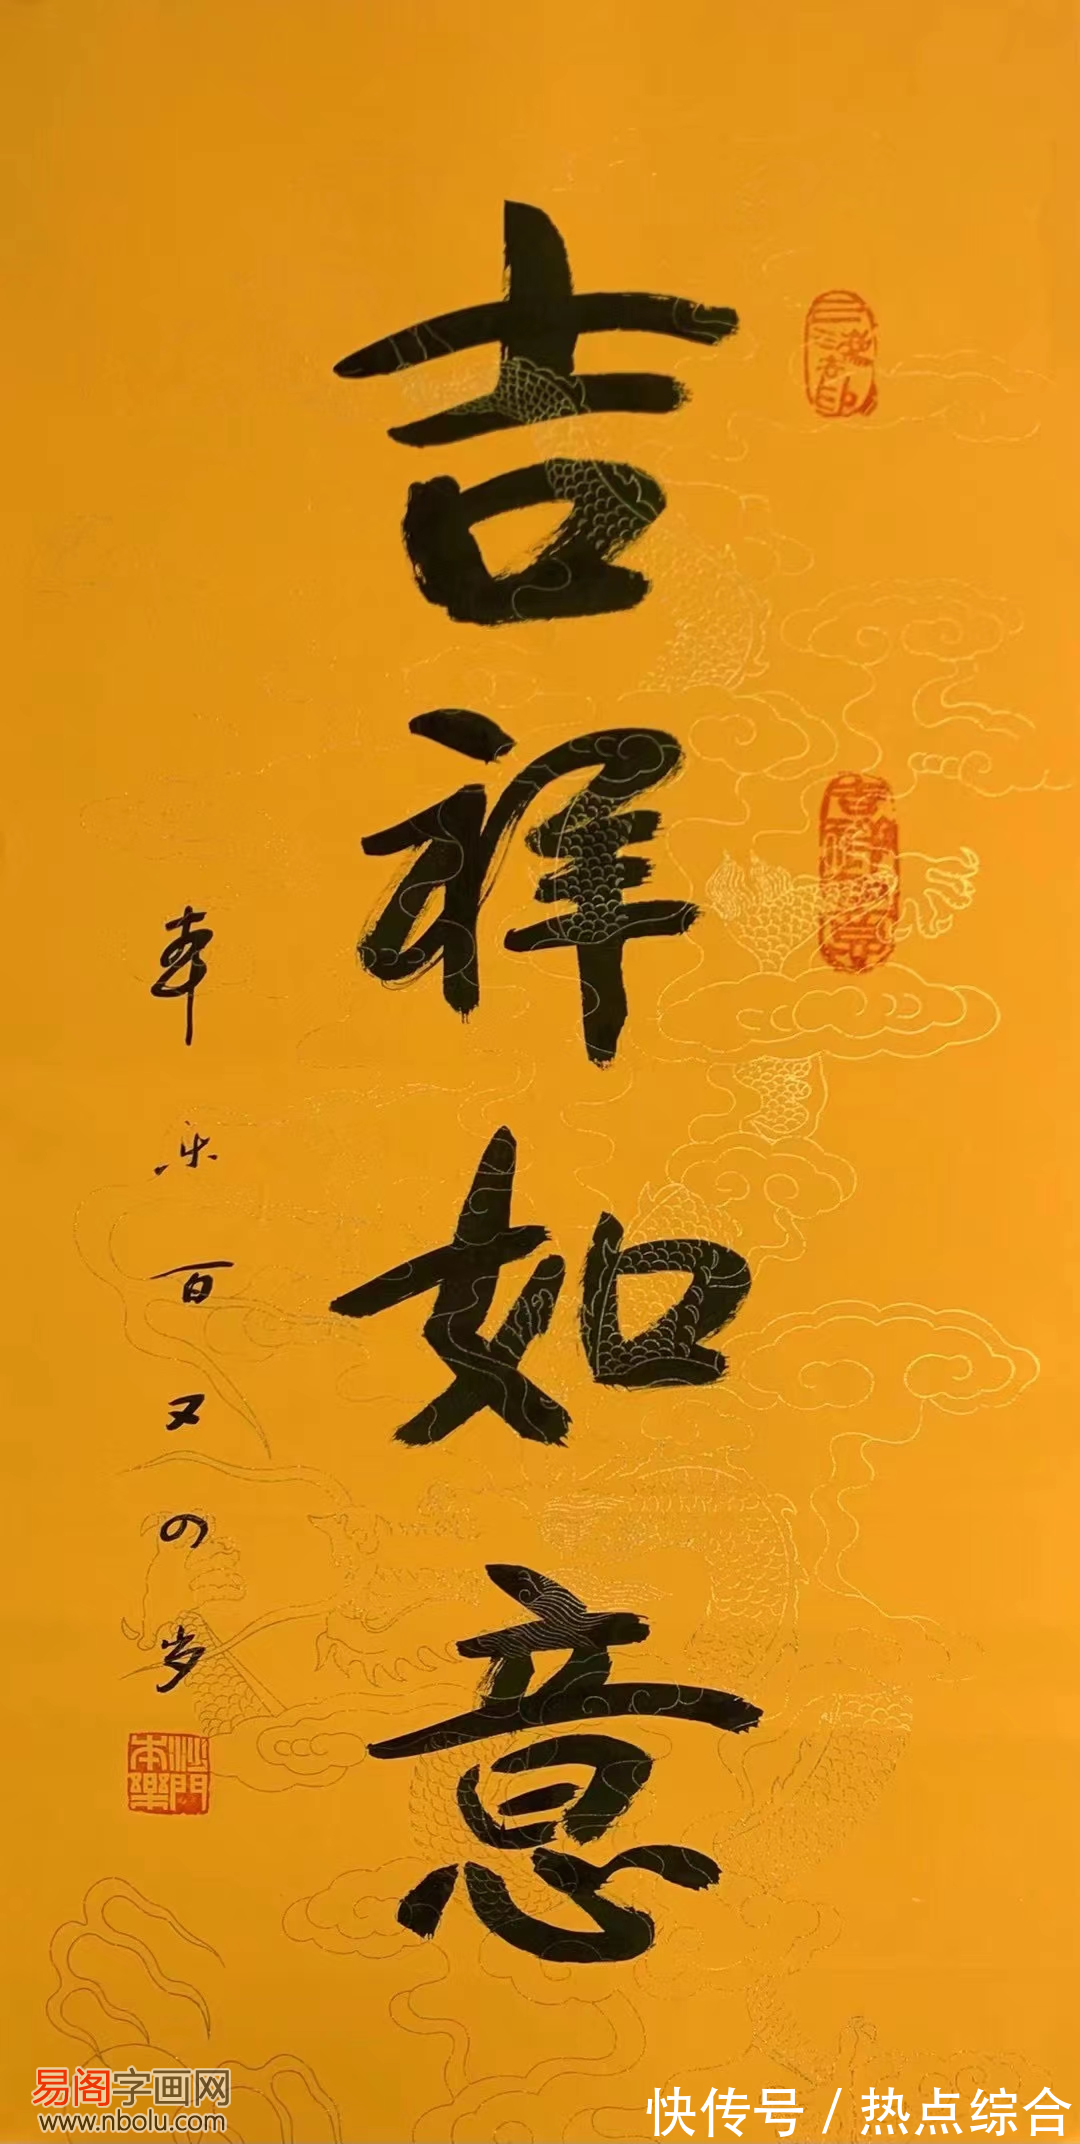 吉祥如意
本乐百又四岁
沙門本樂
易阁字画网
www.nbolu.com
快传号 / 热点综合